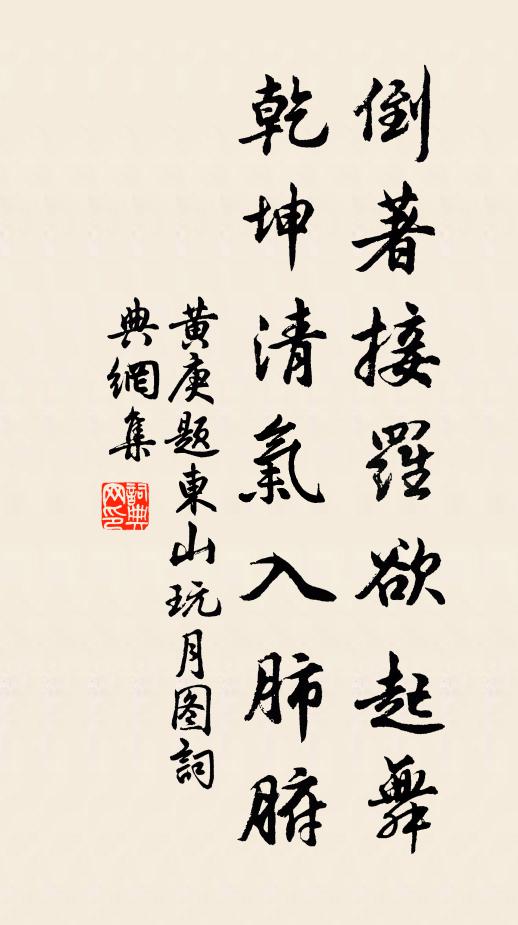 倒著接羅欲起舞
乾坤清氣入肺腑
黄庚题東山玩月图詞
典網集
詞典网印